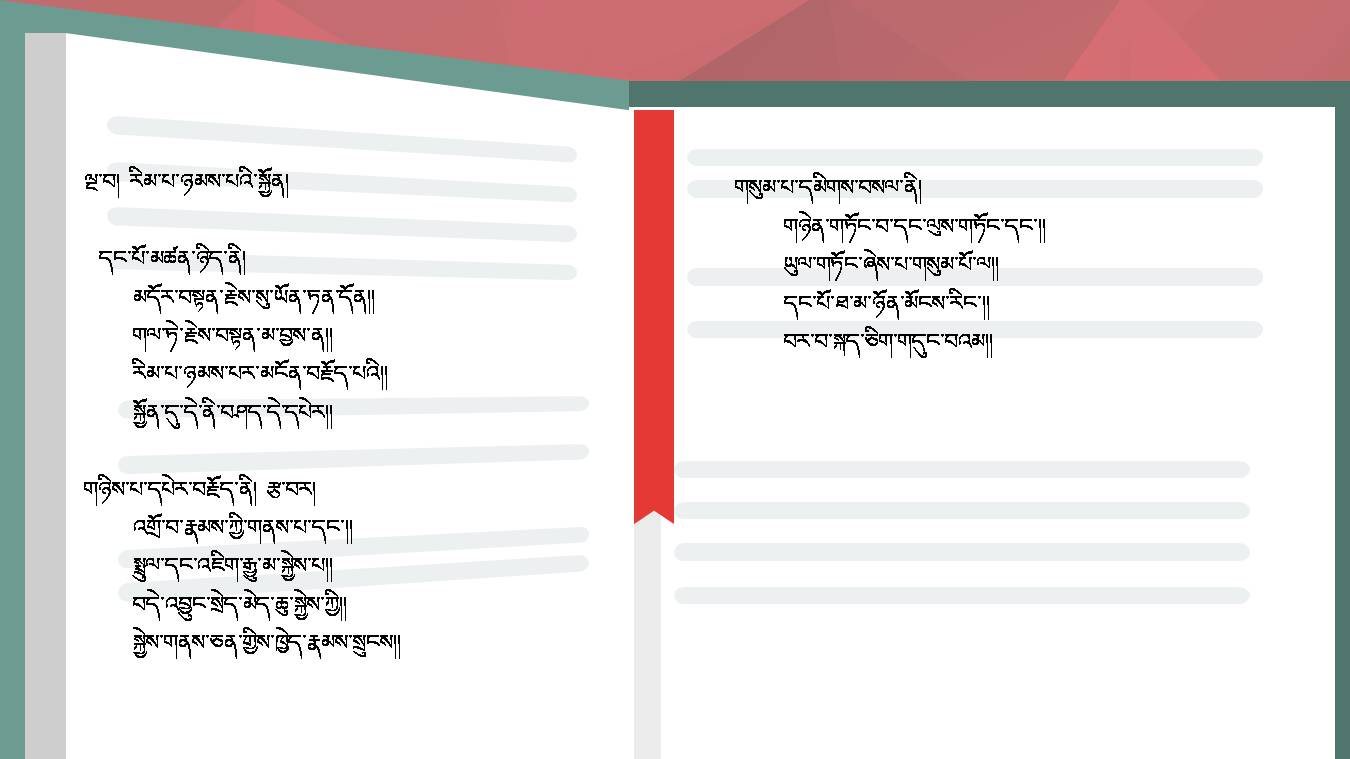 ལྔ་བ། རིམ་པ་ཉམས་པའི་སྐྱོན།
དང་པོ་མཚན་ཉིད་ནི།
མདོར་བསྟན་རྗེས་སུ་ཡོན་ཏན་དོན།།
གལ་ཏེ་རྗེས་བསྟན་མ་བྱས་ན།།
རིམ་པ་ཉམས་པར་མངོན་བརྗོད་པའི།།
སྐྱོན་དུ་དེ་ནི་བཤད་དེ་དཔེར།།
གཉིས་པ་དཔེར་བརྗོད་ནི། རྩ་བར།
འགྲོ་བ་རྣམས་ཀྱི་གནས་པ་དང་།།
སྤྲུལ་དང་འཇིག་རྒྱུ་མ་སྐྱེས་པ།།
བདེ་འབྱུང་སྲེད་མེད་ཆུ་སྐྱེས་ཀྱི།།
སྐྱེས་གནས་ཅན་གྱིས་ཁྱེད་རྣམས་སྲུངས།།
གསུམ་པ་དམིགས་བསལ་ནི།
གཉེན་གཏོང་བ་དང་ལུས་གཏོང་དང་།།
ཡུལ་གཏོང་ཞེས་པ་གསུམ་པོ་ལ།།
དང་པོ་ཐ་མ་ཉོན་མོངས་རིང་།།
བར་བ་སྐད་ཅིག་གདུང་བའམ།།